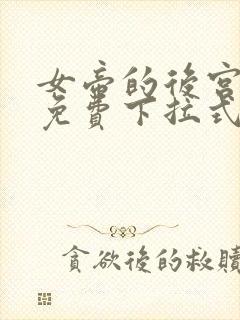 女帝的後宮
免費下拉式
貪欲後的救贖